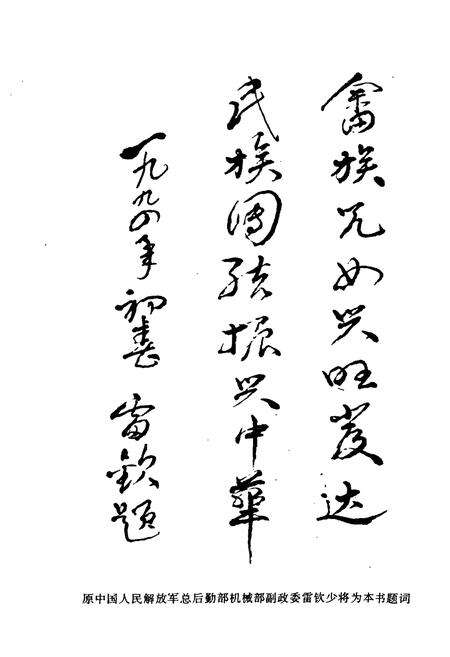 畲族兒女兴旺發达
民族團结振兴中華
一九九四年初春 雷钦题
原中国人民解放军总后勤部机械部副政委雷钦少将为本书题词